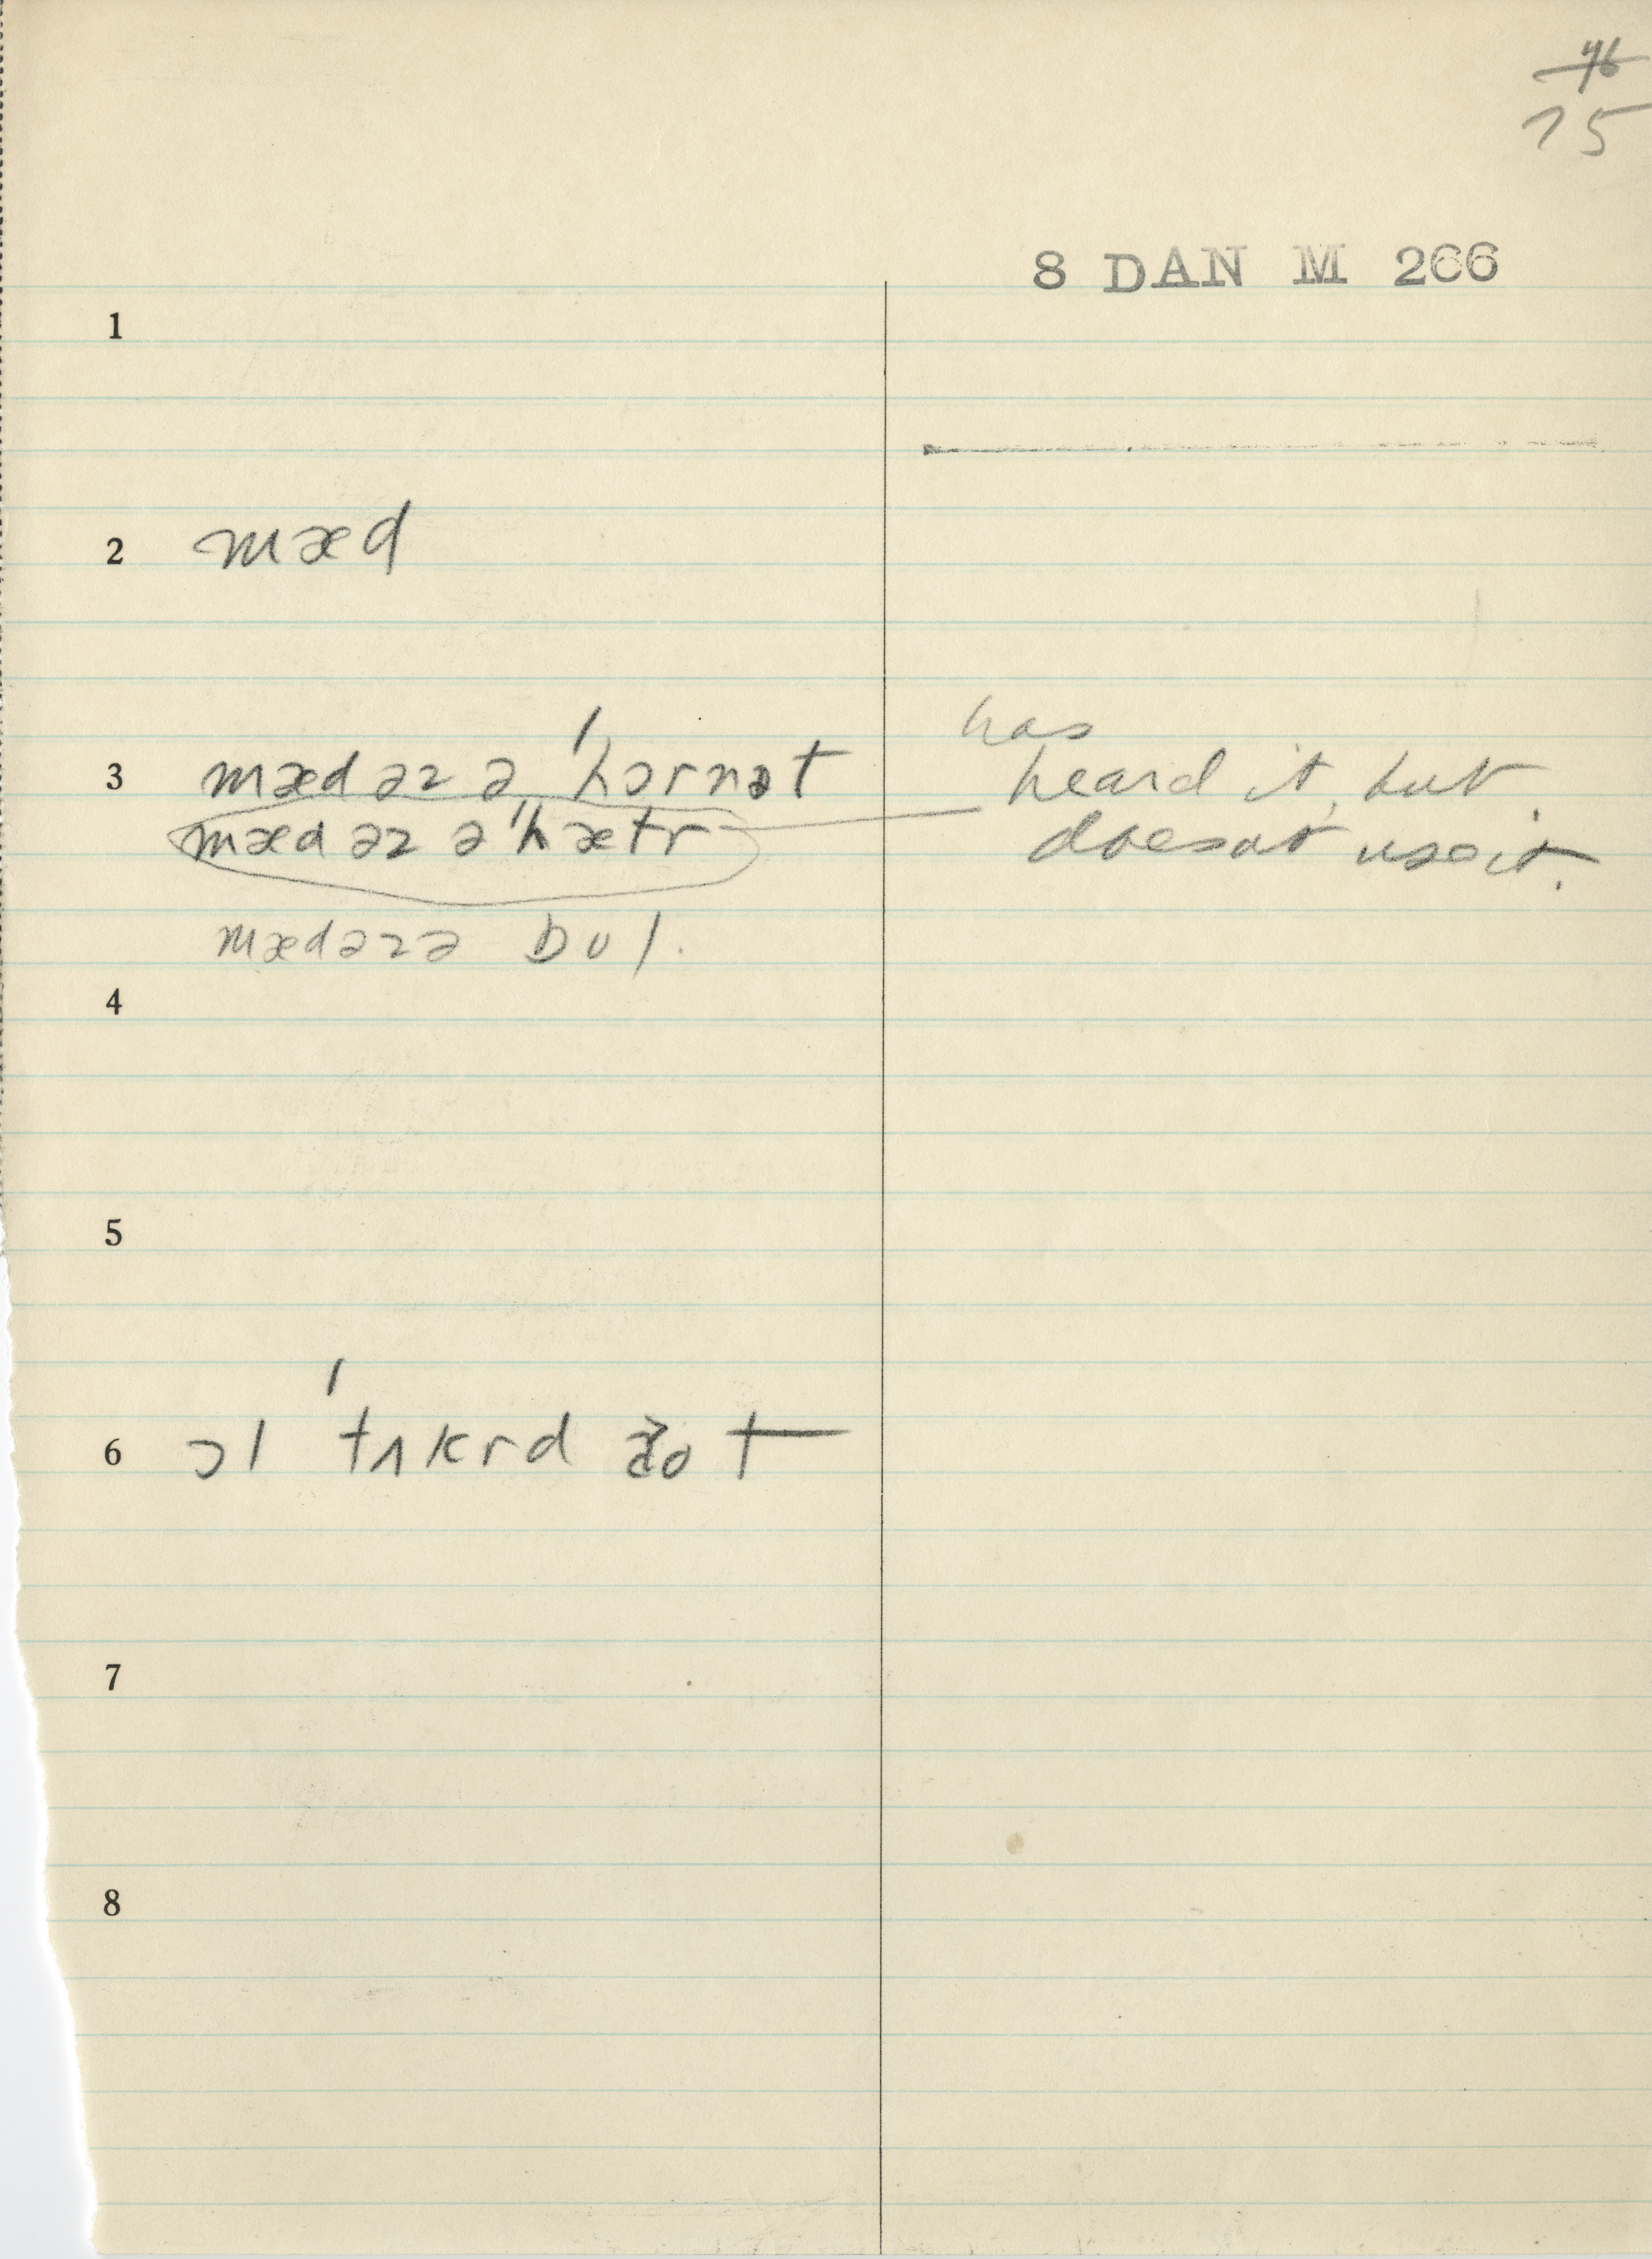 46
75
8 DAN M 266
1
2 mæd
has
3 mæd əz ə ˈhɔrnət heard it, but
mæd əz ə ˈhætr doesnt use it.
mædəzə bʊl.
4
5
6 ɔl ˈtʌkrd
7
8